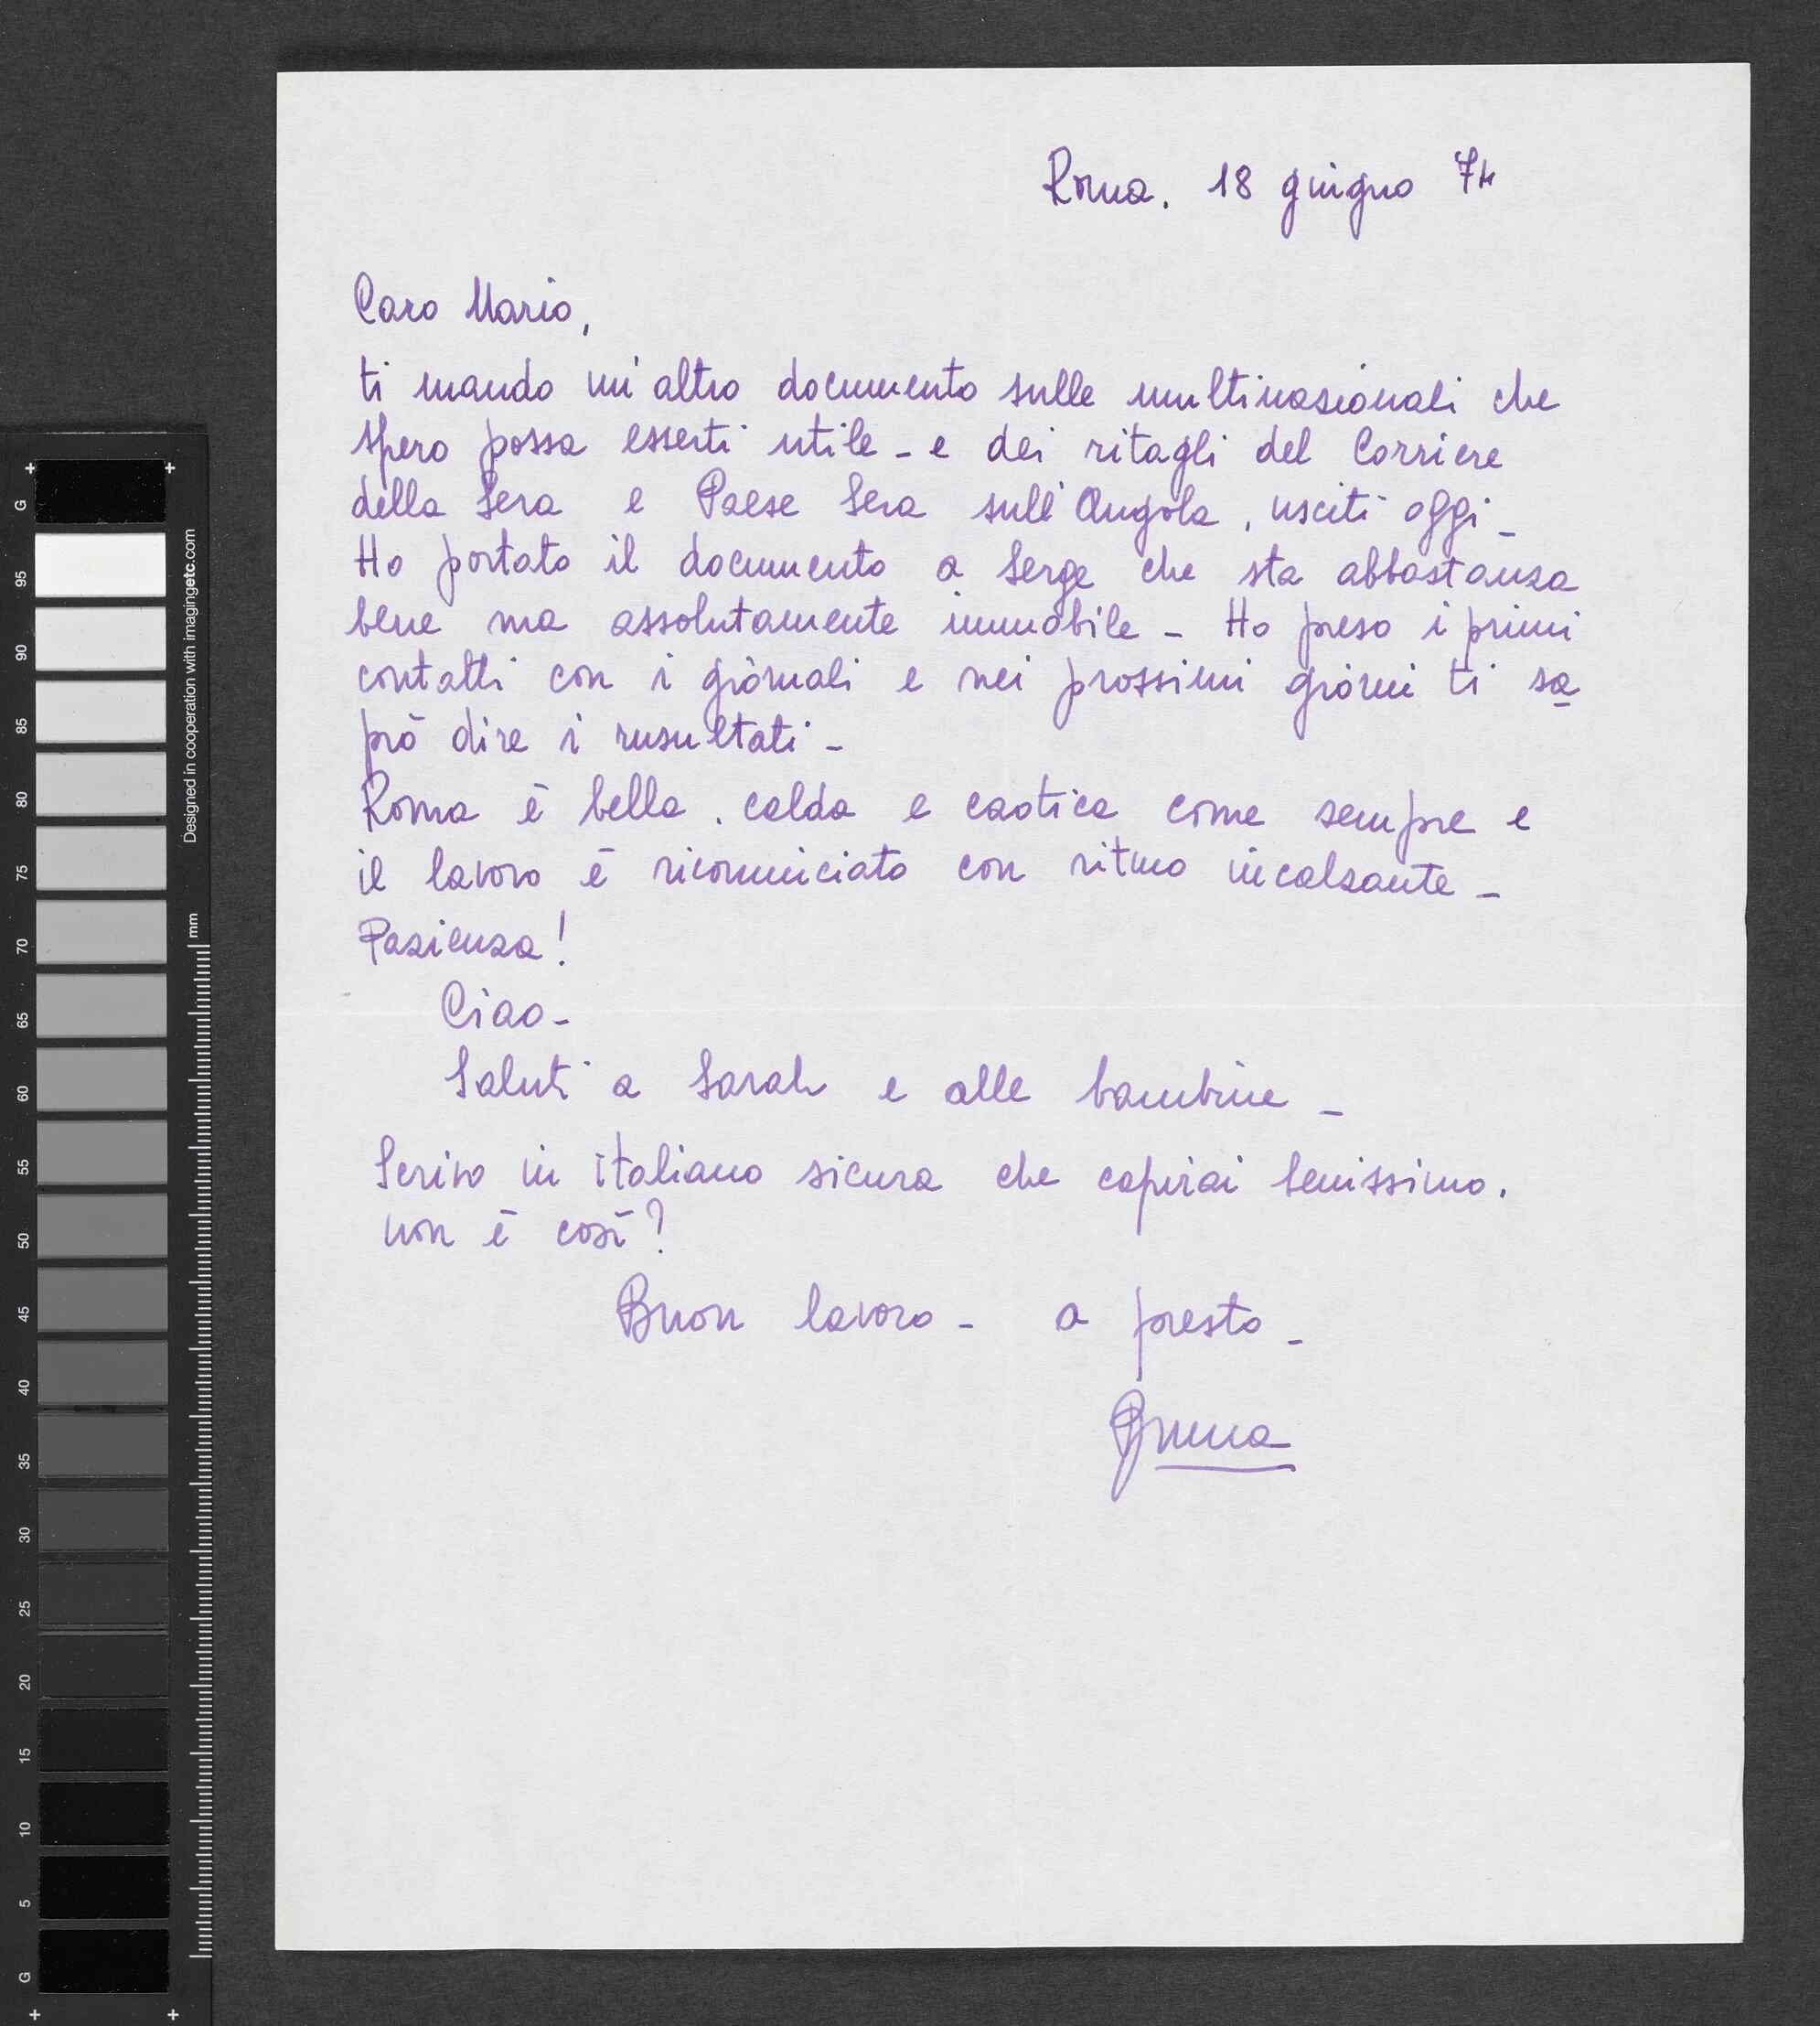 Roma, 18 giugno 74
Caro Mario,
ti mando un'altro documento sulle multinazionali che
spero possa esserti utile - e dei ritagli del Corriere
della Sera e Paese Sera sull'Angola, usciti oggi -
Ho portato il documento a Serge che sta abbastanza
bene ma assolutamente immobile - Ho preso i primi
contatti con i giornali e nei prossimi giorni ti sa
prò dire i rusultati -
Roma è bella, calda e caotica come sempre e
il lavoro è ricominciato con ritmo incalzante -
Pazienza!
Ciao -
Saluti a Sarah e alle bambine -
Scrivo in italiano sicura che capirai benissimo.
non è così?
Buon lavoro - a presto -
G 95 90 85 80 75 70 65 60 55 50 45 40 35 30 25 20 15 10 5 G
Designed in cooperation with imagingetc.com
mm